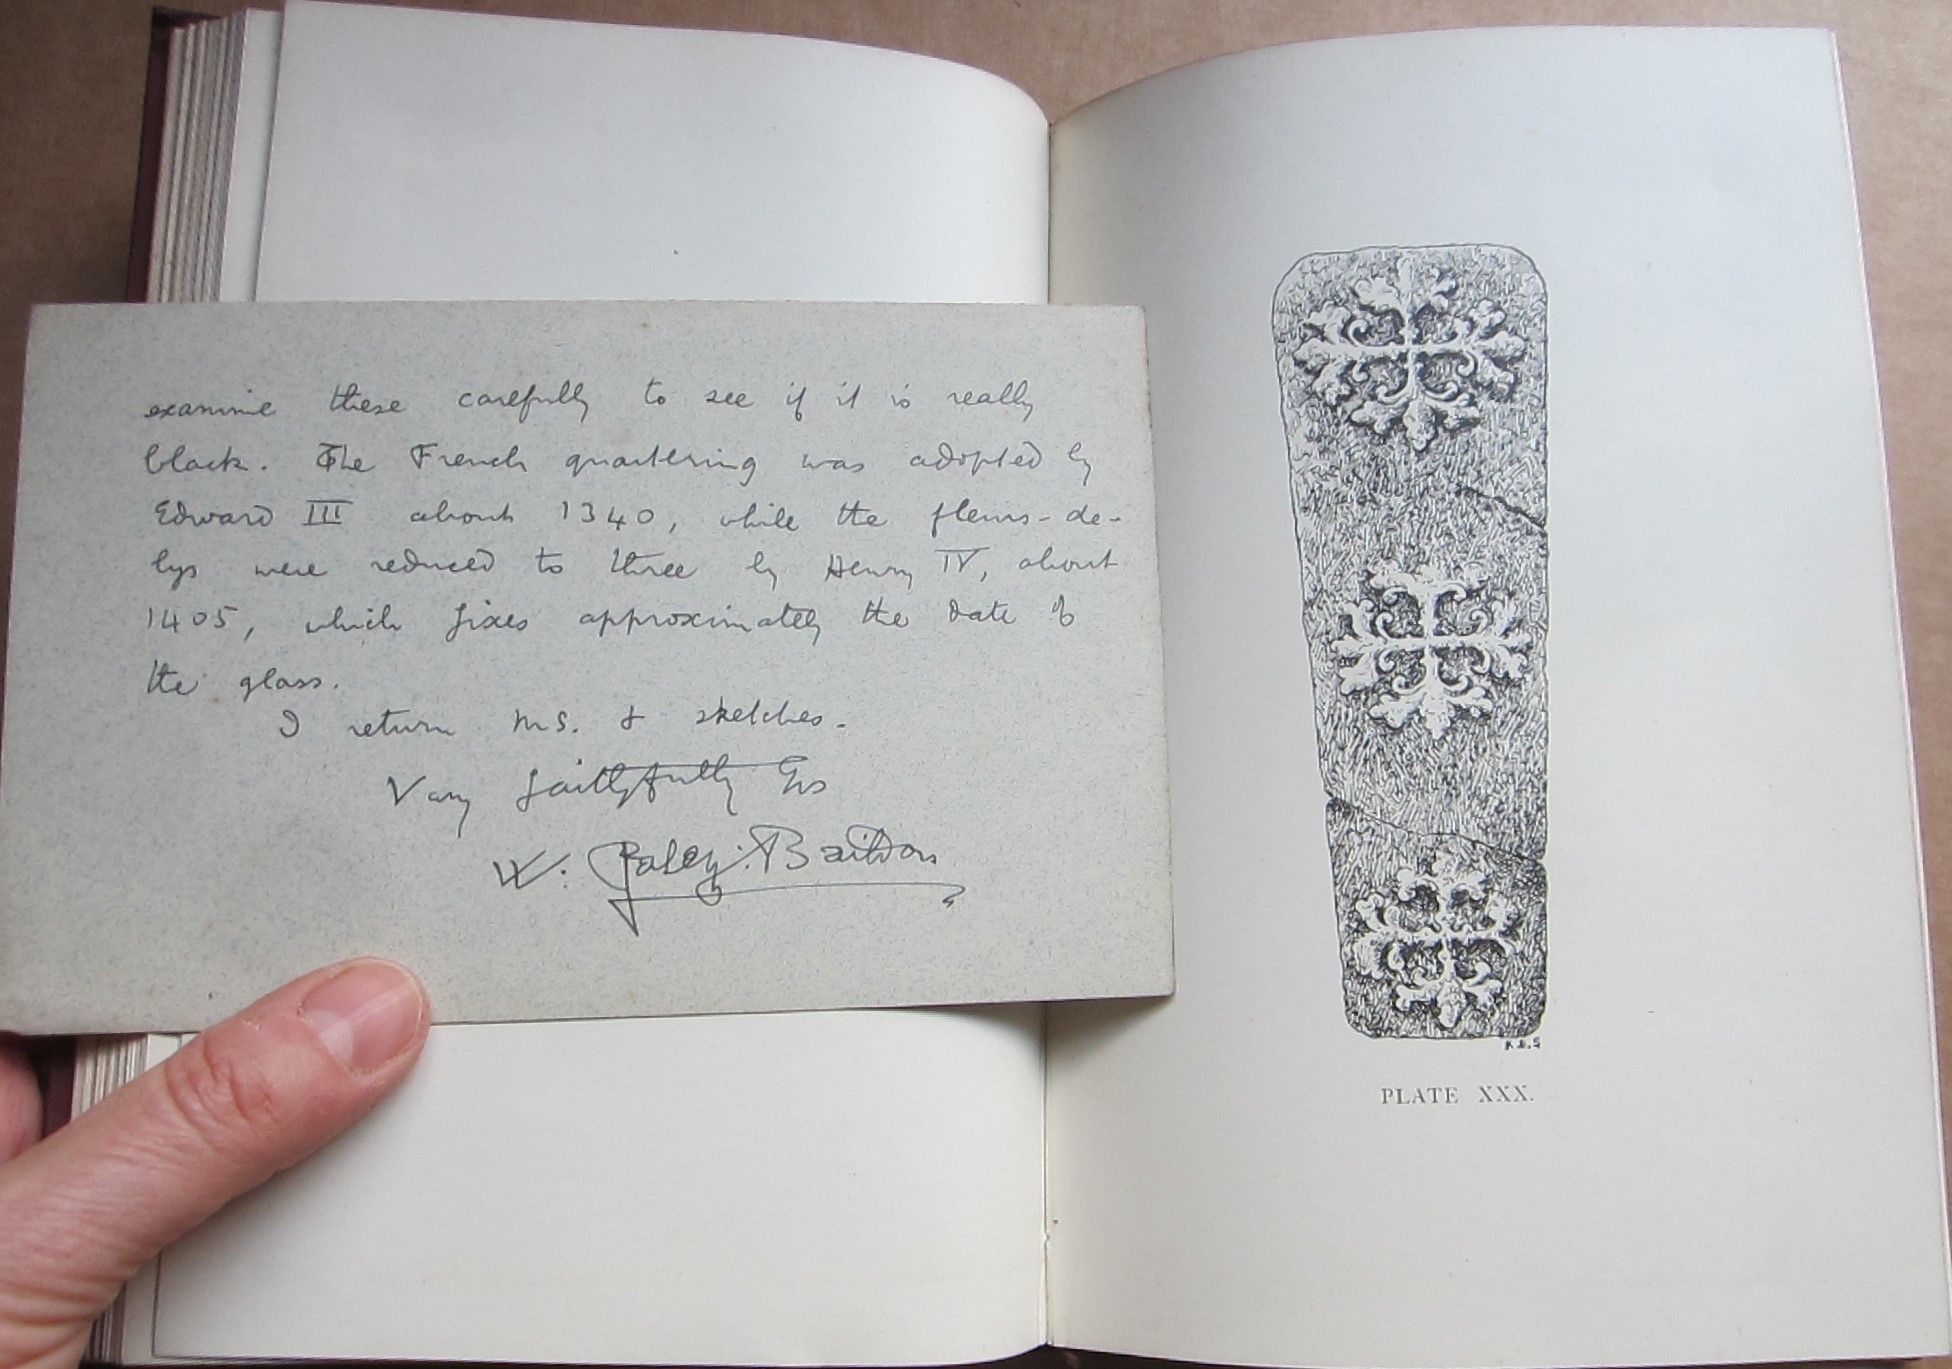 examine these carefully to see if it is really
black. The French quartering was adopted by
Edward III about 1340, while the fleurs-de-
lys were reduced to three by Henry IV, about
1405, which fixes approximately the date of
the glass.
I return MS. & sketches.
Very faithfully Yrs
W. Paley Baildon
PLATE XXX.